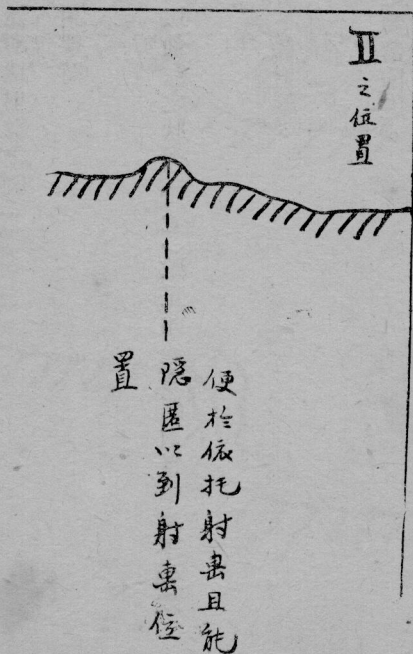 Ⅱ之位置
便於依托射击且能
隐匿以到射击位
置